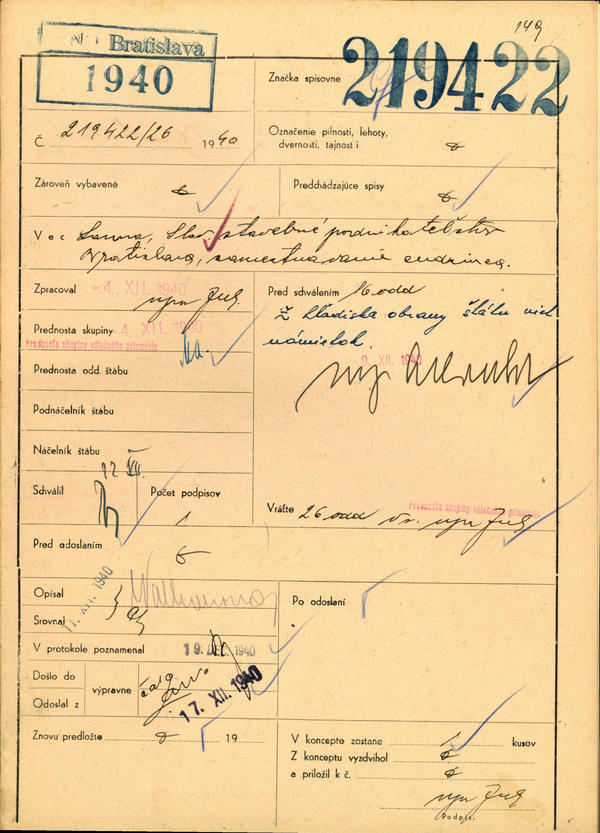 149
Bratislava
1940
Značka spisovne
219422
Č. 219422/26 1940
Označenie pilnosti, lehoty,
dvernosti, tajnosti
Zároveň vybavené
Predchádzajúce spisy
Vec Lanna, Slov. stavebné podnikateľstvo
Bratislava, zamestnavanie cudzincov.
Zpracoval
-4. XII. 1940
Prednosta skupiny
4 XII. 1940
Prednosta skupiny válečného priemyslu
Prednosta odd. štábu
Podnáčelník štábu
Náčelník štábu
12 XII.
Schválil
Počet podpisov
1
Pred odoslaním
Pred schválením 16 odd
Z hľadiska obrany štátu niet
námietok.
9 XII. 1940
Prednosta skupiny válečného priemyslu
Vráťte 26 odd
11. XII. 1940
Opísal
Srovnal
V protokole poznamenal
19. DEC. 1940
Došlo do
Odoslal z
výpravne
17. XII. 1940
Po odoslaní
Znovu predložte 19
V koncepte zostane 1 kusov
Z konceptu vyzdvihol
a priložil k č.
Podpis.